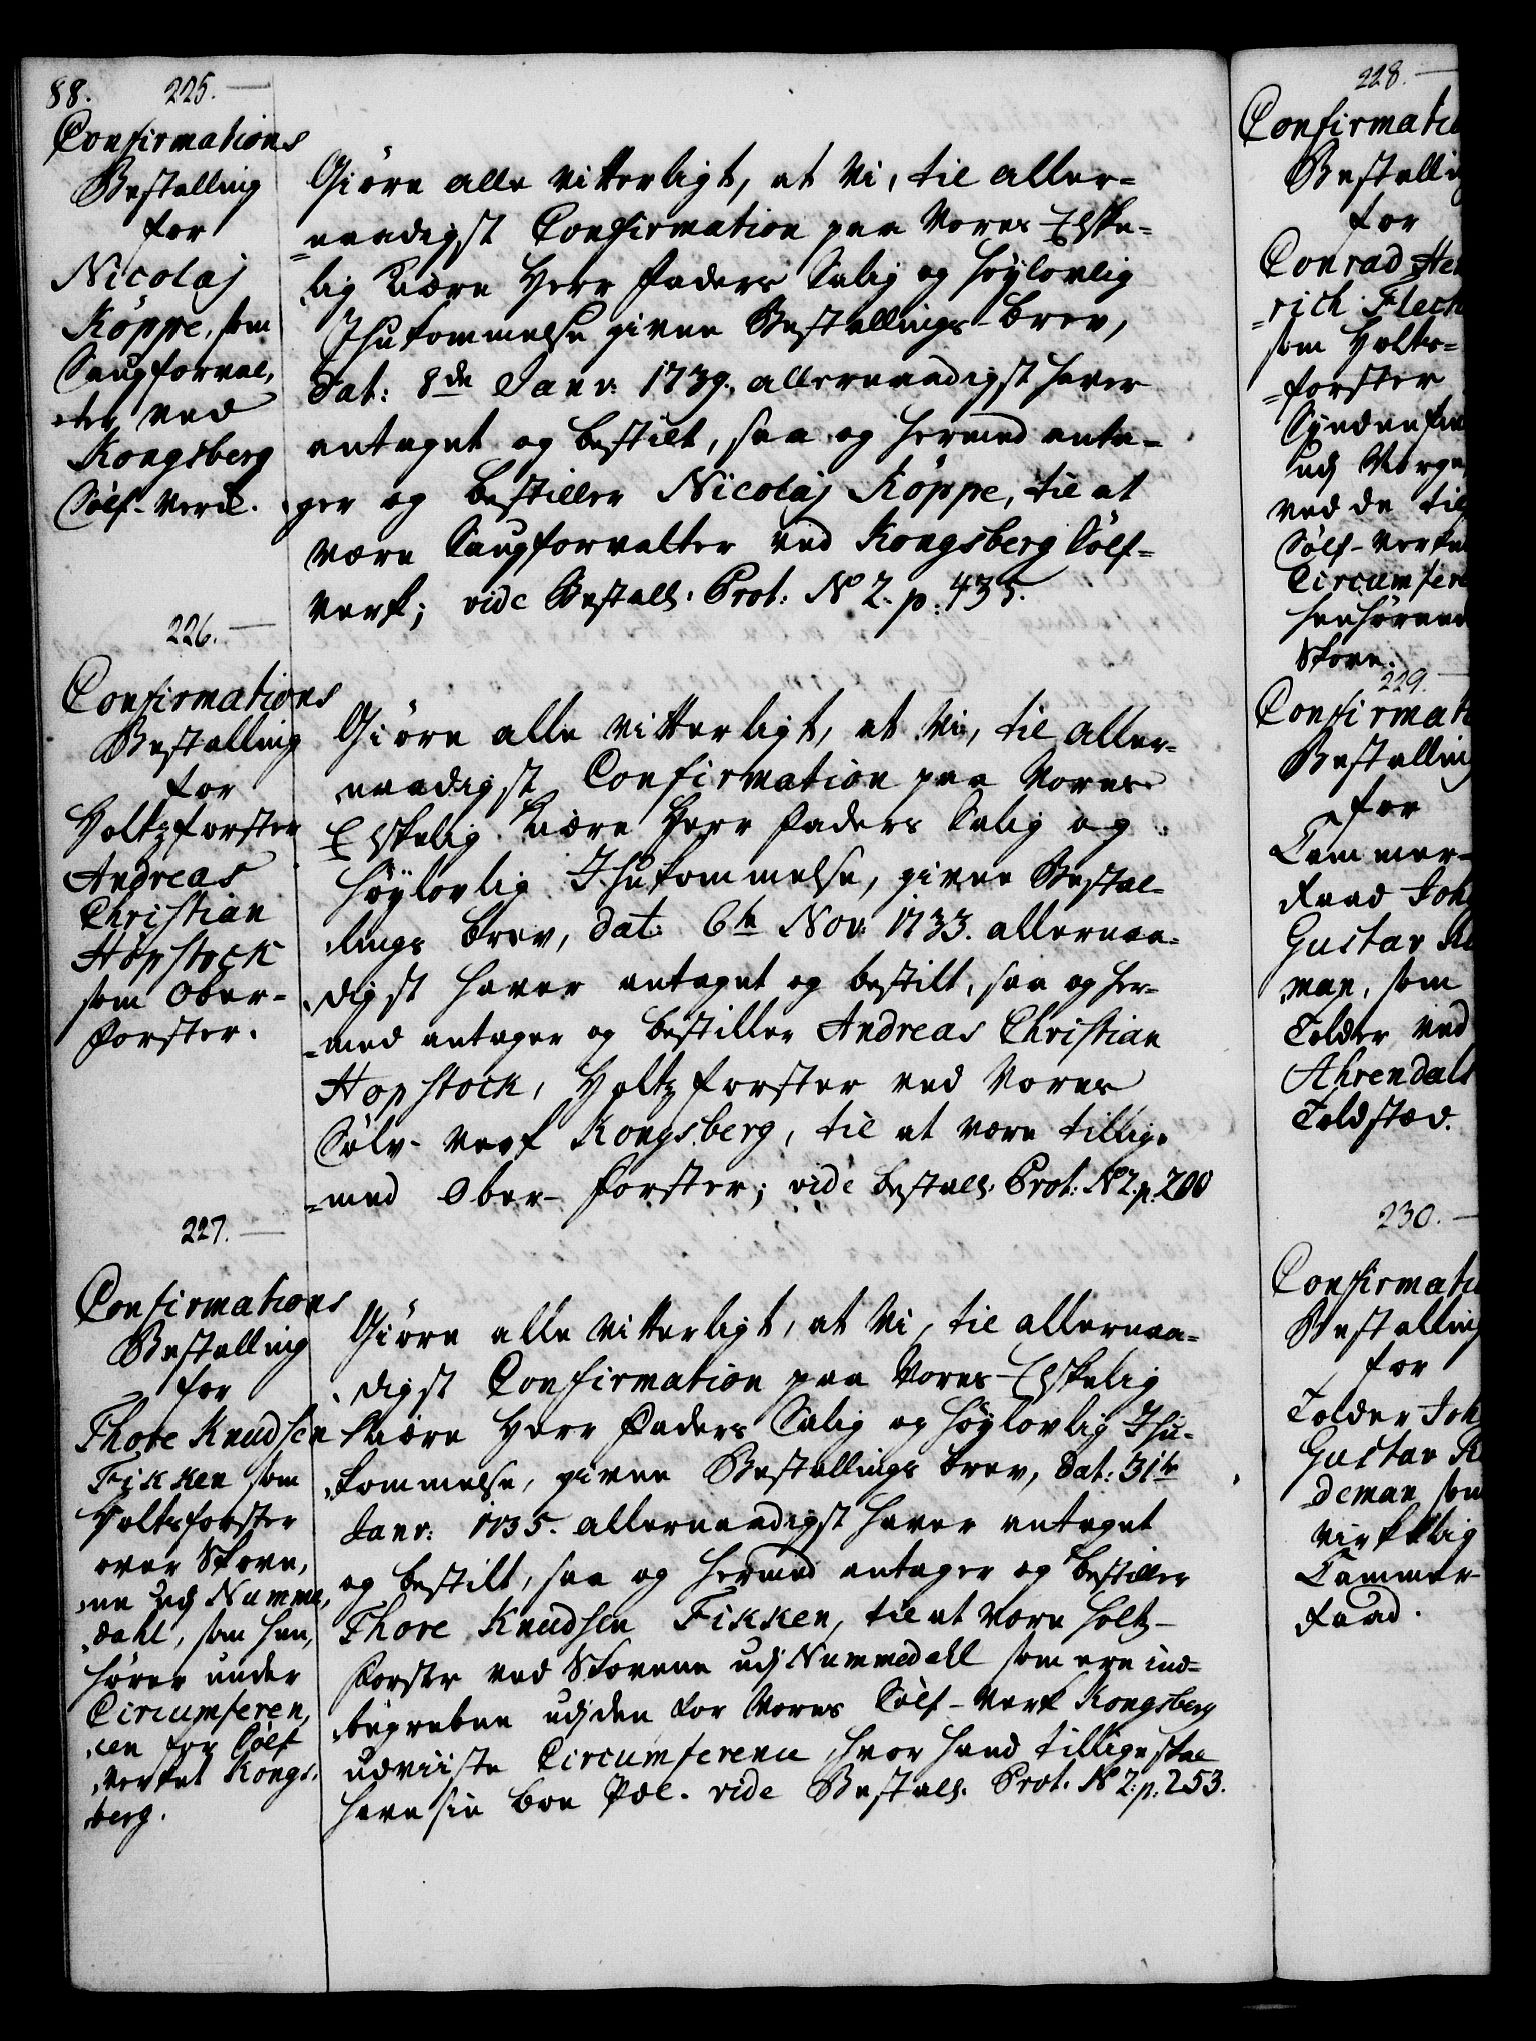 88.
225.
Confirmations
Bestalling
for
Nicolaj
Köppe, som
Saugforval,
ter ved
Kongsberg
Sölf-Verck.
Giöre alle vitterligt, at Vi, til aller-
naadigst Confirmation paa Vores Elske-
lig Kiære Herr Faders Salig og Höylovlig
Ihukommelse givne Bestallings-brev,
dat: 8de Janv: 1739. allernaadigst haver
antaget og bestilt, saa og hermed anta-
ger og bestiller Nicolaj Köppe, til at
være Saugforvalter ved Kongsberg Sölf-
verk; vide Bestall: Prot: No 2. p: 435.
226.
Confirmations
Bestalling
for
Holtzforster
Andreas
Christian
Hopstock
som Ober-
forster.
Giöre alle vitterligt, at Vi, til aller-
naadigst Confirmation paa Vores
Elskelig Kiære Herr Faders Salig og
Höylovlig Ihukommelse, givne Bestal-
lings brev, dat: 6te Nov: 1733. allernaa-
digst haver antaget og bestilt, saa og her-
med antager og bestiller Andreas Christian
Hopstock, Holtzforster ved Vores
Sölv-Verk Kongsberg, til at være tillige
med Ober-forster; vide bestall: Prot: No 2. p. 200
227.
Confirmations
Bestalling
for
Thore Knudsen
Fikken som
Holtsforster
over Skove,
ne udj Numme,
dahl, som hen,
hörer under
Circumferen,
cen for Sölf
verket Kongs,
berg.
Giöre alle vitterligt, at Vi, til allernaa-
digst Confirmation paa Vores Elskelig
Kiære Herr Faders Salig og Höylovlig Ihu-
kommelse, givne Bestallings brev, dat: 31te
Janv: 1735. allernaadigst haver antaget
og bestilt, saa og hermed antager og bestiller
Thore Knudsen Fikken, til at være holtz-
forster ved Skovene udj Nummedahl som ere ind-
begrebne udj den for Vores Sölf-verk Kongsberg
udviiste Circumference, hvor hand tillige skal
have sin boe Pæl. vide Bestall: Prot. No 2: p: 253.
228.
Confirmatio
Bestalling
for
Conrad Hen
rich Fleck
som Holtz-
forster
Syndenfie
udj Norge
ved de til
Sölf-Verke
Circumfere
henhörend
Skove.
229.
Confirmati
Bestalling
for
Cammer-
Raad Joh
Gustav Re
man, som
Tolder ved
Ahrendals
Toldsted.
230.
Confirmatio
Bestalling
for
Tolder Joh
Gustav R
deman som
virkelig
Cammer-
Raad.